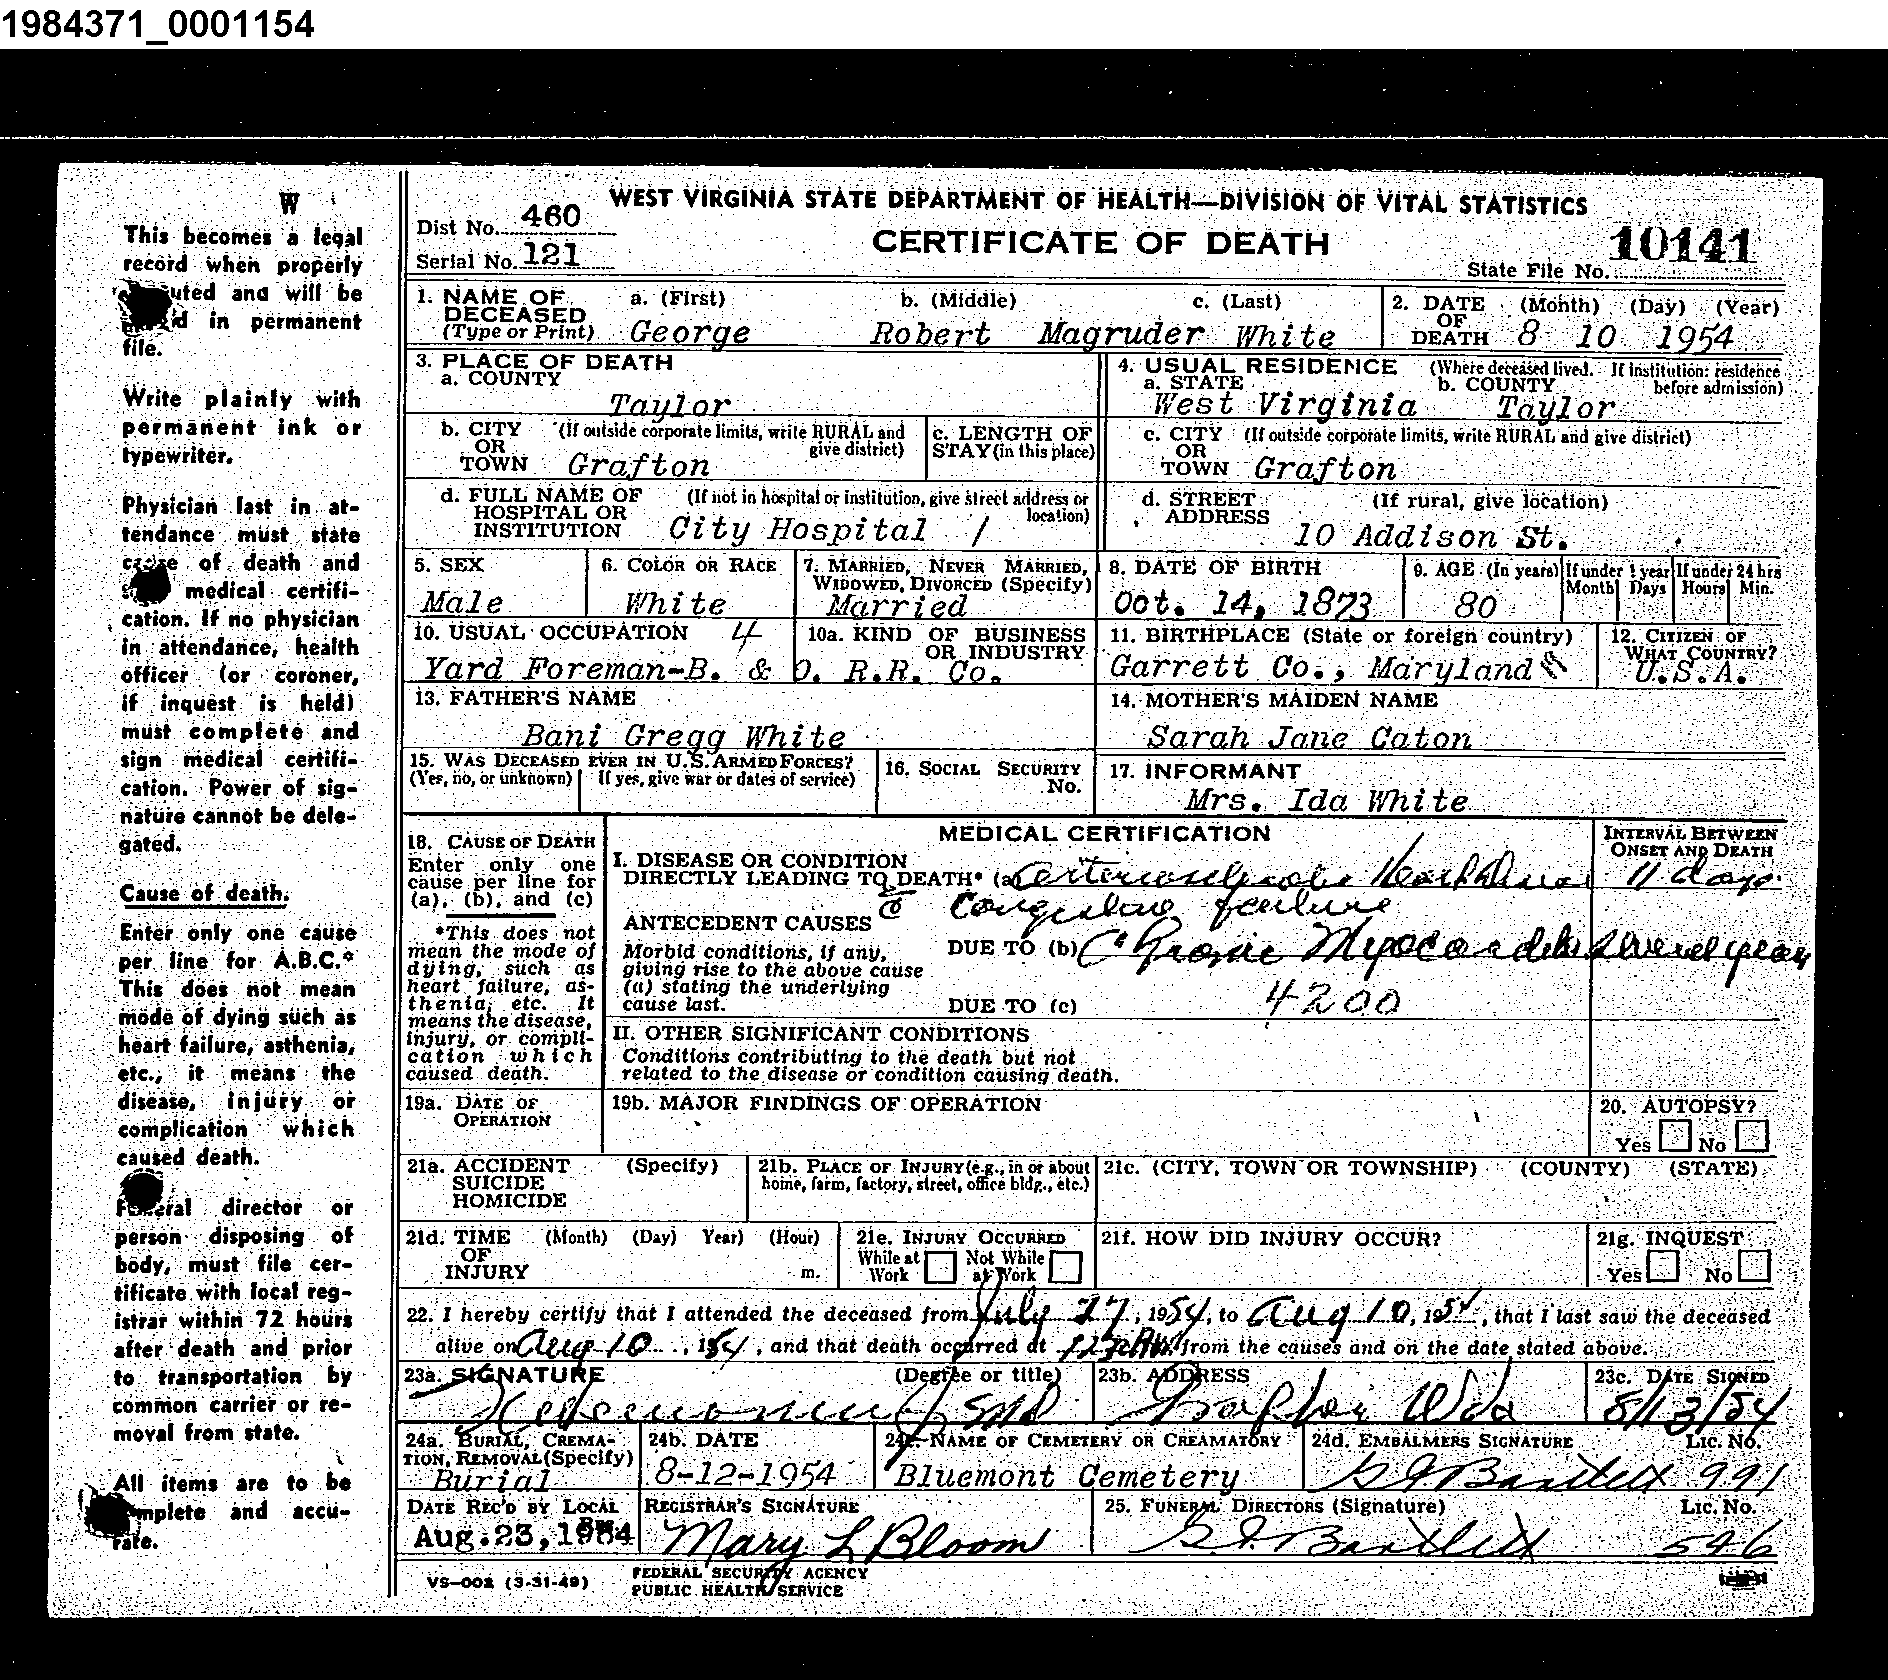 1984371_0001154
W
This becomes a legal
record when properly
uted and will be
d in permanent
file.
Write plainly with
permanent ink or
typewriter.
Physician last in at-
tendance must state
cause of death and
medical certifi-
cation. If no physician
in attendance, health
officer (or coroner,
if inquest is held)
must complete and
sign medical certifi-
cation. Power of sig-
nature cannot be dele-
gated.
Cause of death.
Enter only one cause
per line for A.B.C.*
This does not mean
mode of dying such as
heart failure, asthenia,
etc., it means the
disease, injury or
complication which
caused death.
Funeral director or
person disposing of
body, must file cer-
tificate with local reg-
istrar within 72 hours
after death and prior
to transportation by
common carrier or re-
moval from state.
All items are to be
mplete and accu-
rate.
WEST VIRGINIA STATE DEPARTMENT OF HEALTH—DIVISION OF VITAL STATISTICS
Dist No. 460
Serial No. 121
CERTIFICATE OF DEATH
State File No. 10141
1. NAME OF DECEASED (Type or Print) a. (First) b. (Middle) c. (Last)
George Robert Magruder White
2. DATE OF DEATH (Month) (Day) (Year)
8 10 1954
3. PLACE OF DEATH
a. COUNTY
Taylor
4. USUAL RESIDENCE (Where deceased lived. If institution: residence before admission)
a. STATE b. COUNTY
West Virginia Taylor
b. CITY OR TOWN (If outside corporate limits, write RURAL and give district)
Grafton
c. LENGTH OF STAY (in this place)
c. CITY OR TOWN (If outside corporate limits, write RURAL and give district)
Grafton
d. FULL NAME OF HOSPITAL OR INSTITUTION (If not in hospital or institution, give street address or location)
City Hospital /
d. STREET ADDRESS (If rural, give location)
10 Addison St.
5. SEX
Male
6. COLOR OR RACE
White
7. MARRIED, NEVER MARRIED, WIDOWED, DIVORCED (Specify)
Married
8. DATE OF BIRTH
Oct. 14, 1873
9. AGE (In years) If under 1 year Month Days If under 24 hrs Hours Min.
80
10. USUAL OCCUPATION 4
10a. KIND OF BUSINESS OR INDUSTRY
Yard Foreman-B. & O. R.R. Co.
11. BIRTHPLACE (State or foreign country)
Garrett Co., Maryland
12. CITIZEN OF WHAT COUNTRY?
U.S.A.
13. FATHER'S NAME
Bani Gregg White
14. MOTHER'S MAIDEN NAME
Sarah Jane Caton
15. WAS DECEASED EVER IN U.S. ARMED FORCES?
(Yes, no, or unknown) If yes, give war or dates of service)
16. SOCIAL SECURITY No.
17. INFORMANT
Mrs. Ida White
18. CAUSE OF DEATH
Enter only one
cause per line for
(a), (b), and (c)
*This does not
mean the mode of
dying, such as
heart failure, as-
thenia, etc. It
means the disease,
injury, or compli-
cation which
caused death.
MEDICAL CERTIFICATION
INTERVAL BETWEEN ONSET AND DEATH
I. DISEASE OR CONDITION
DIRECTLY LEADING TO DEATH* (a) Arteriosclerotic Heart Disease 11 days
c̄ Congestive failure
ANTECEDENT CAUSES
Morbid conditions, if any,
giving rise to the above cause
(a) stating the underlying
cause last.
DUE TO (b) Chronic Myocarditis several years
DUE TO (c) 4200
II. OTHER SIGNIFICANT CONDITIONS
Conditions contributing to the death but not
related to the disease or condition causing death.
19a. DATE OF OPERATION
19b. MAJOR FINDINGS OF OPERATION
20. AUTOPSY?
Yes No
21a. ACCIDENT SUICIDE HOMICIDE (Specify)
21b. PLACE OF INJURY (e.g., in or about home, farm, factory, street, office bldg., etc.)
21c. (CITY, TOWN OR TOWNSHIP) (COUNTY) (STATE)
21d. TIME OF INJURY (Month) (Day) Year) (Hour) m.
21e. INJURY OCCURRED
While at Work Not While at Work
21f. HOW DID INJURY OCCUR?
21g. INQUEST
Yes No
22. I hereby certify that I attended the deceased from July 27, 1954, to Aug 10, 1954, that I last saw the deceased
alive on Aug 10, 1954, and that death occurred at m. from the causes and on the date stated above.
23a. SIGNATURE (Degree or title)
MD
23b. ADDRESS
Grafton W Va
23c. DATE SIGNED
8/13/54
24a. BURIAL, CREMA-
TION, REMOVAL (Specify)
Burial
24b. DATE
8-12-1954
24c. NAME OF CEMETERY OR CREAMATORY
Bluemont Cemetery
24d. EMBALMERS SIGNATURE LIC. NO.
G J Bartlett 991
DATE REC'D BY LOCAL
Aug. 23, 1954
REGISTRAR'S SIGNATURE
Mary L Bloom
25. FUNERAL DIRECTORS (Signature) LIC. NO.
G. J. Bartlett 546
VS-002 (3-31-49)
FEDERAL SECURITY AGENCY
PUBLIC HEALTH SERVICE